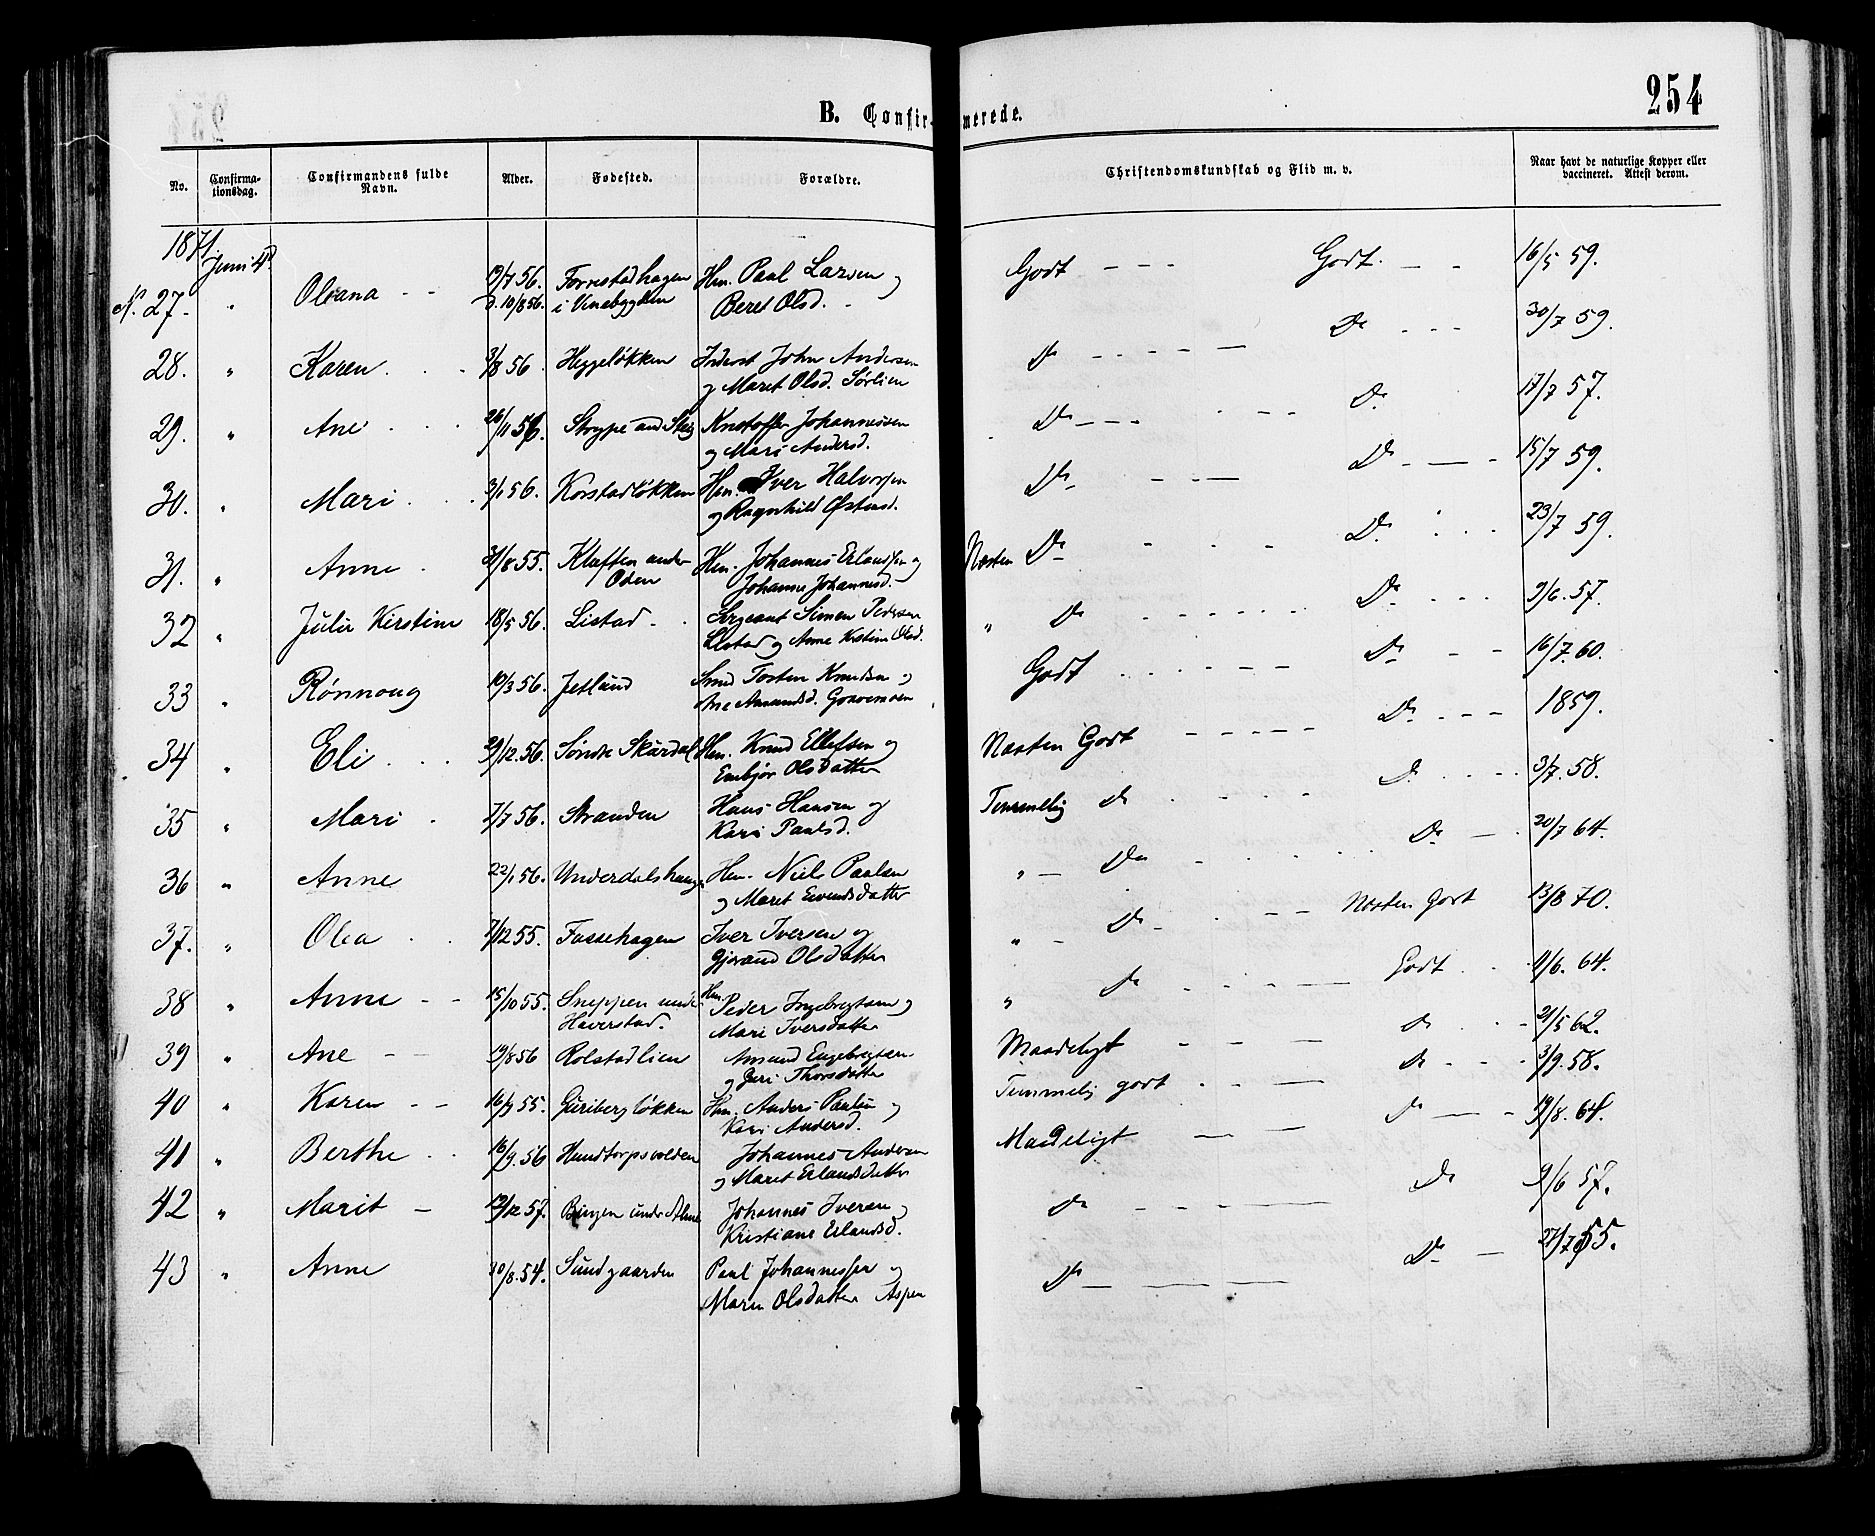 254
B. Confirmerede.
No. Confirmationsdag. Confirmandens fulde Navn. Alder. Fødested. Forældre. Christendomskundskab og Flid m. v. Naar havt de naturlige Kopper eller vaccineret. Attest derom.
1871. Juni 4d
N. 27. " Oleana - - 19/7 56. Forrestadhagen Hm. Paul Larsen og Godt - - - Godt. - - 16/5 59.
d. 10/8 56. i Vinebygden Beret Olsd. -
28. " Karen . . . 3/8 56. Heggeløkken Inderst John Andersen Do - - - - - Do - - - 30/7 59.
og Maret Olsd. Sørlien
29. " Ane . . . 26/11 56. Strype und Steig Kristoffer Johannesen Do - - - . - - Do 17/7 57.
og Mari Andersd.
30. " Mari . . . 3/1 56. Korstadløkken Hm. Iver Halvorsen Do - . - — Do - — - 15/7 59.
og Ragnhild Østensd.
31. " Anne . 31/8 55. Kløften under Hm. Johannes Erlandsen og Næsten Do - - - Do . . . 23/7 59.
Oden Johanne Johannesd.
32 " Julie Kirstine 18/5 56. Listad - . Sergeant Simen Pedersen " Do - - - - - Do - - - 9/6. 57.
Listad og Anne Kristine Olsd.
33 " Rønnoug 10/3 56. Jetlund Smed Tosten Knudsen og Godt . . . - - - Do - - - 16/7. 60.
Ane Amundsd. Gravemoen
34 " Eli . . . 29/12. 56. Søndre Skurdal Hm. Knud Ellefsen og Næsten Godt - - - - - Do - - - 1859.
Embjør Olsdatter
35 " Mari . 7/7 56. Stranden Hans Hansen og Temmelig do . - - - Do . - - - 3/7. 58.
Kari Paulsd.
36 " Anne 22/1 56. Underdalshaugen Hm. Niels Paulsen " — Do - . . . . Do — . 20/7 64.
og Maret Eivindsdatter
37. " Olea . . 7/12 55. Fossehagen Iver Iversen og " - Do - . - - Næsten Godt 13/8 70.
Gjørand Olsdatter
38 " Anne - - 15/10 55. Sneppen under Hm. Peder Ingebrigtsen og " do - - - - — Godt . . 11/6. 64.
Haverstad. Mari Iversdatter
39 " Ane - - 19/8 56 Rolstadlien Amund Engebrigtsen Maadeligt - - — do . - - 21/5 62.
og Guri Thorsdatter
40 " Karen - - 16/9 55. Guribergløkken Hm. Anders Paulsen og Temmelig godt . - - — do - - - 3/9. 58.
Kari Andersd.
41 " Berthe . . 16/9. 56 Hundtorpsvolden Johannes Andersen Maadeligt — - — do — - 19/8. 64.
og Maret Erlandsdatter
42 " Marit - 12/12 57. Bingen under Alme Johannes Iversen og do - - - - - — do 9/6 57.
Kristiane Erlandsd.
43 " Anne 30/8. 54. Sundgaarden Paul Johannessen og Do — — — — Do — 27/7 55.
Maren Olsdatter Aspen